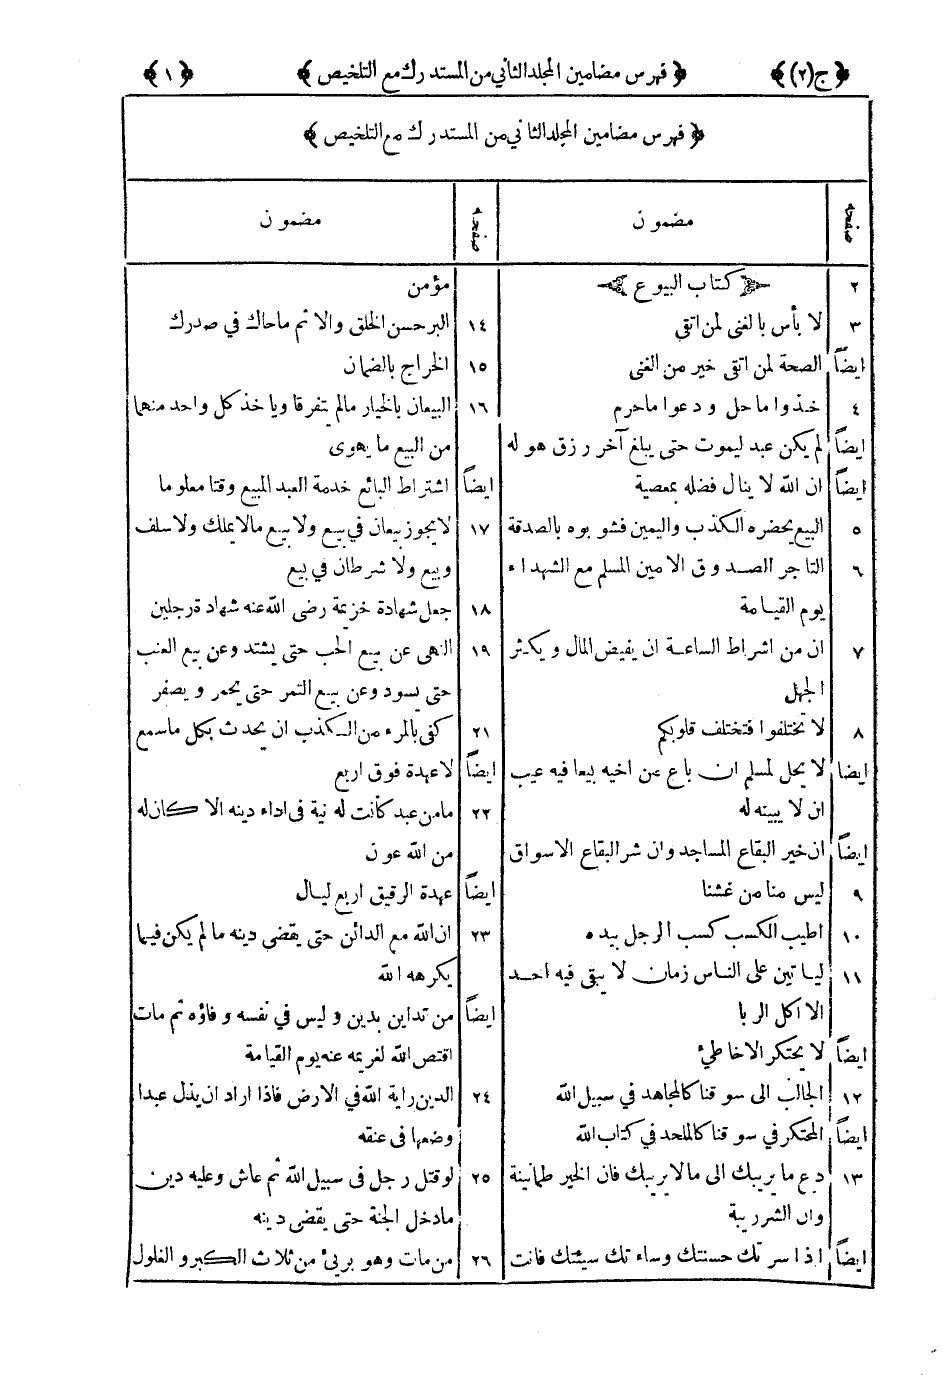 ﴿ ج (٢) ﴾ ﴿ فهرس مضامين المجلد الثاني من المستدرك مع التلخيص ﴾ ﴿ ١ ﴾
﴿ فهرس مضامين المجلد الثاني من المستدرك مع التلخيص ﴾
صفحه مضمون
٢ كتاب البيوع
٣ لا بأس بالغنى لمن اتقى
ايضاً الصحة لمن اتقى خير من الغنى
٤ خذوا ماحل ودعوا ماحرم
ايضاً لم يكن عبد ليموت حتى يبلغ آخر رزق هو له
ايضاً ان الله لا ينال فضله بمعصية
٥ البيع يحضره الكذب واليمين فشوبوه بالصدقة
٦ التاجر الصدوق الامين المسلم مع الشهداء
يوم القيامة
٧ ان من اشراط الساعة ان يفيض المال ويكثر
الجهل
٨ لا تختلفوا فتختلف قلوبكم
ايضا لا يحل لمسلم ان باع من اخيه بيعا فيه عيب
ان لا يبينه له
ايضاً ان خير البقاع المساجد وان شر البقاع الاسواق
٩ ليس منا من غشنا
١٠ اطيب الكسب كسب الرجل بيده
١١ ليأتين على الناس زمان لا يبقى فيه احد
الا اكل الربا
ايضاً لا يحتكر الا خاطئ
١٢ الجالب الى سوقنا كالمجاهد في سبيل الله
ايضاً المحتكر في سوقنا كالملحد في كتاب الله
١٣ دع ما يريبك الى مالا يريبك فان الخير طمانينة
وان الشر ريبة
ايضاً اذا سرتك حسنتك وساءتك سيئتك فانت
صفحه مضمون
مؤمن
١٤ البر حسن الخلق والاثم ماحاك في صدرك
١٥ الخراج بالضمان
١٦ البيعان بالخيار مالم يتفرقا وياخذ كل واحد منهما
من البيع ما يهوى
ايضاً اشتراط البائع خدمة العبد المبيع وقتا معلوما
١٧ لايجوز بيعان في بيع ولا بيع مالا يملك ولا سلف
وبيع ولا شرطان في بيع
١٨ جعل شهادة خزيمة رضى الله عنه شهادة رجلين
١٩ النهى عن بيع الحب حتى يشتد وعن بيع العنب
حتى يسود وعن بيع التمر حتى يحمر ويصفر
٢١ كفى بالمرء من الكذب ان يحدث بكل ماسمع
ايضاً لا عهدة فوق اربع
٢٢ مامن عبد كانت له نية فى اداء دينه الا كان له
من الله عون
ايضاً عهدة الرقيق اربع ليال
٢٣ ان الله مع الدائن حتى يقضى دينه ما لم يكن فيما
يكرهه الله
ايضاً من تداين بدين وليس في نفسه وفاؤه ثم مات
اقتص الله لغريمه عنه يوم القيامة
٢٤ الدين راية الله في الارض فاذا اراد ان يذل عبدا
وضعها فى عنقه
٢٥ لو قتل رجل فى سبيل الله ثم عاش وعليه دين
مادخل الجنة حتى يقضى دينه
٢٦ من مات وهو بريئ من ثلاث الكبر و الغلول